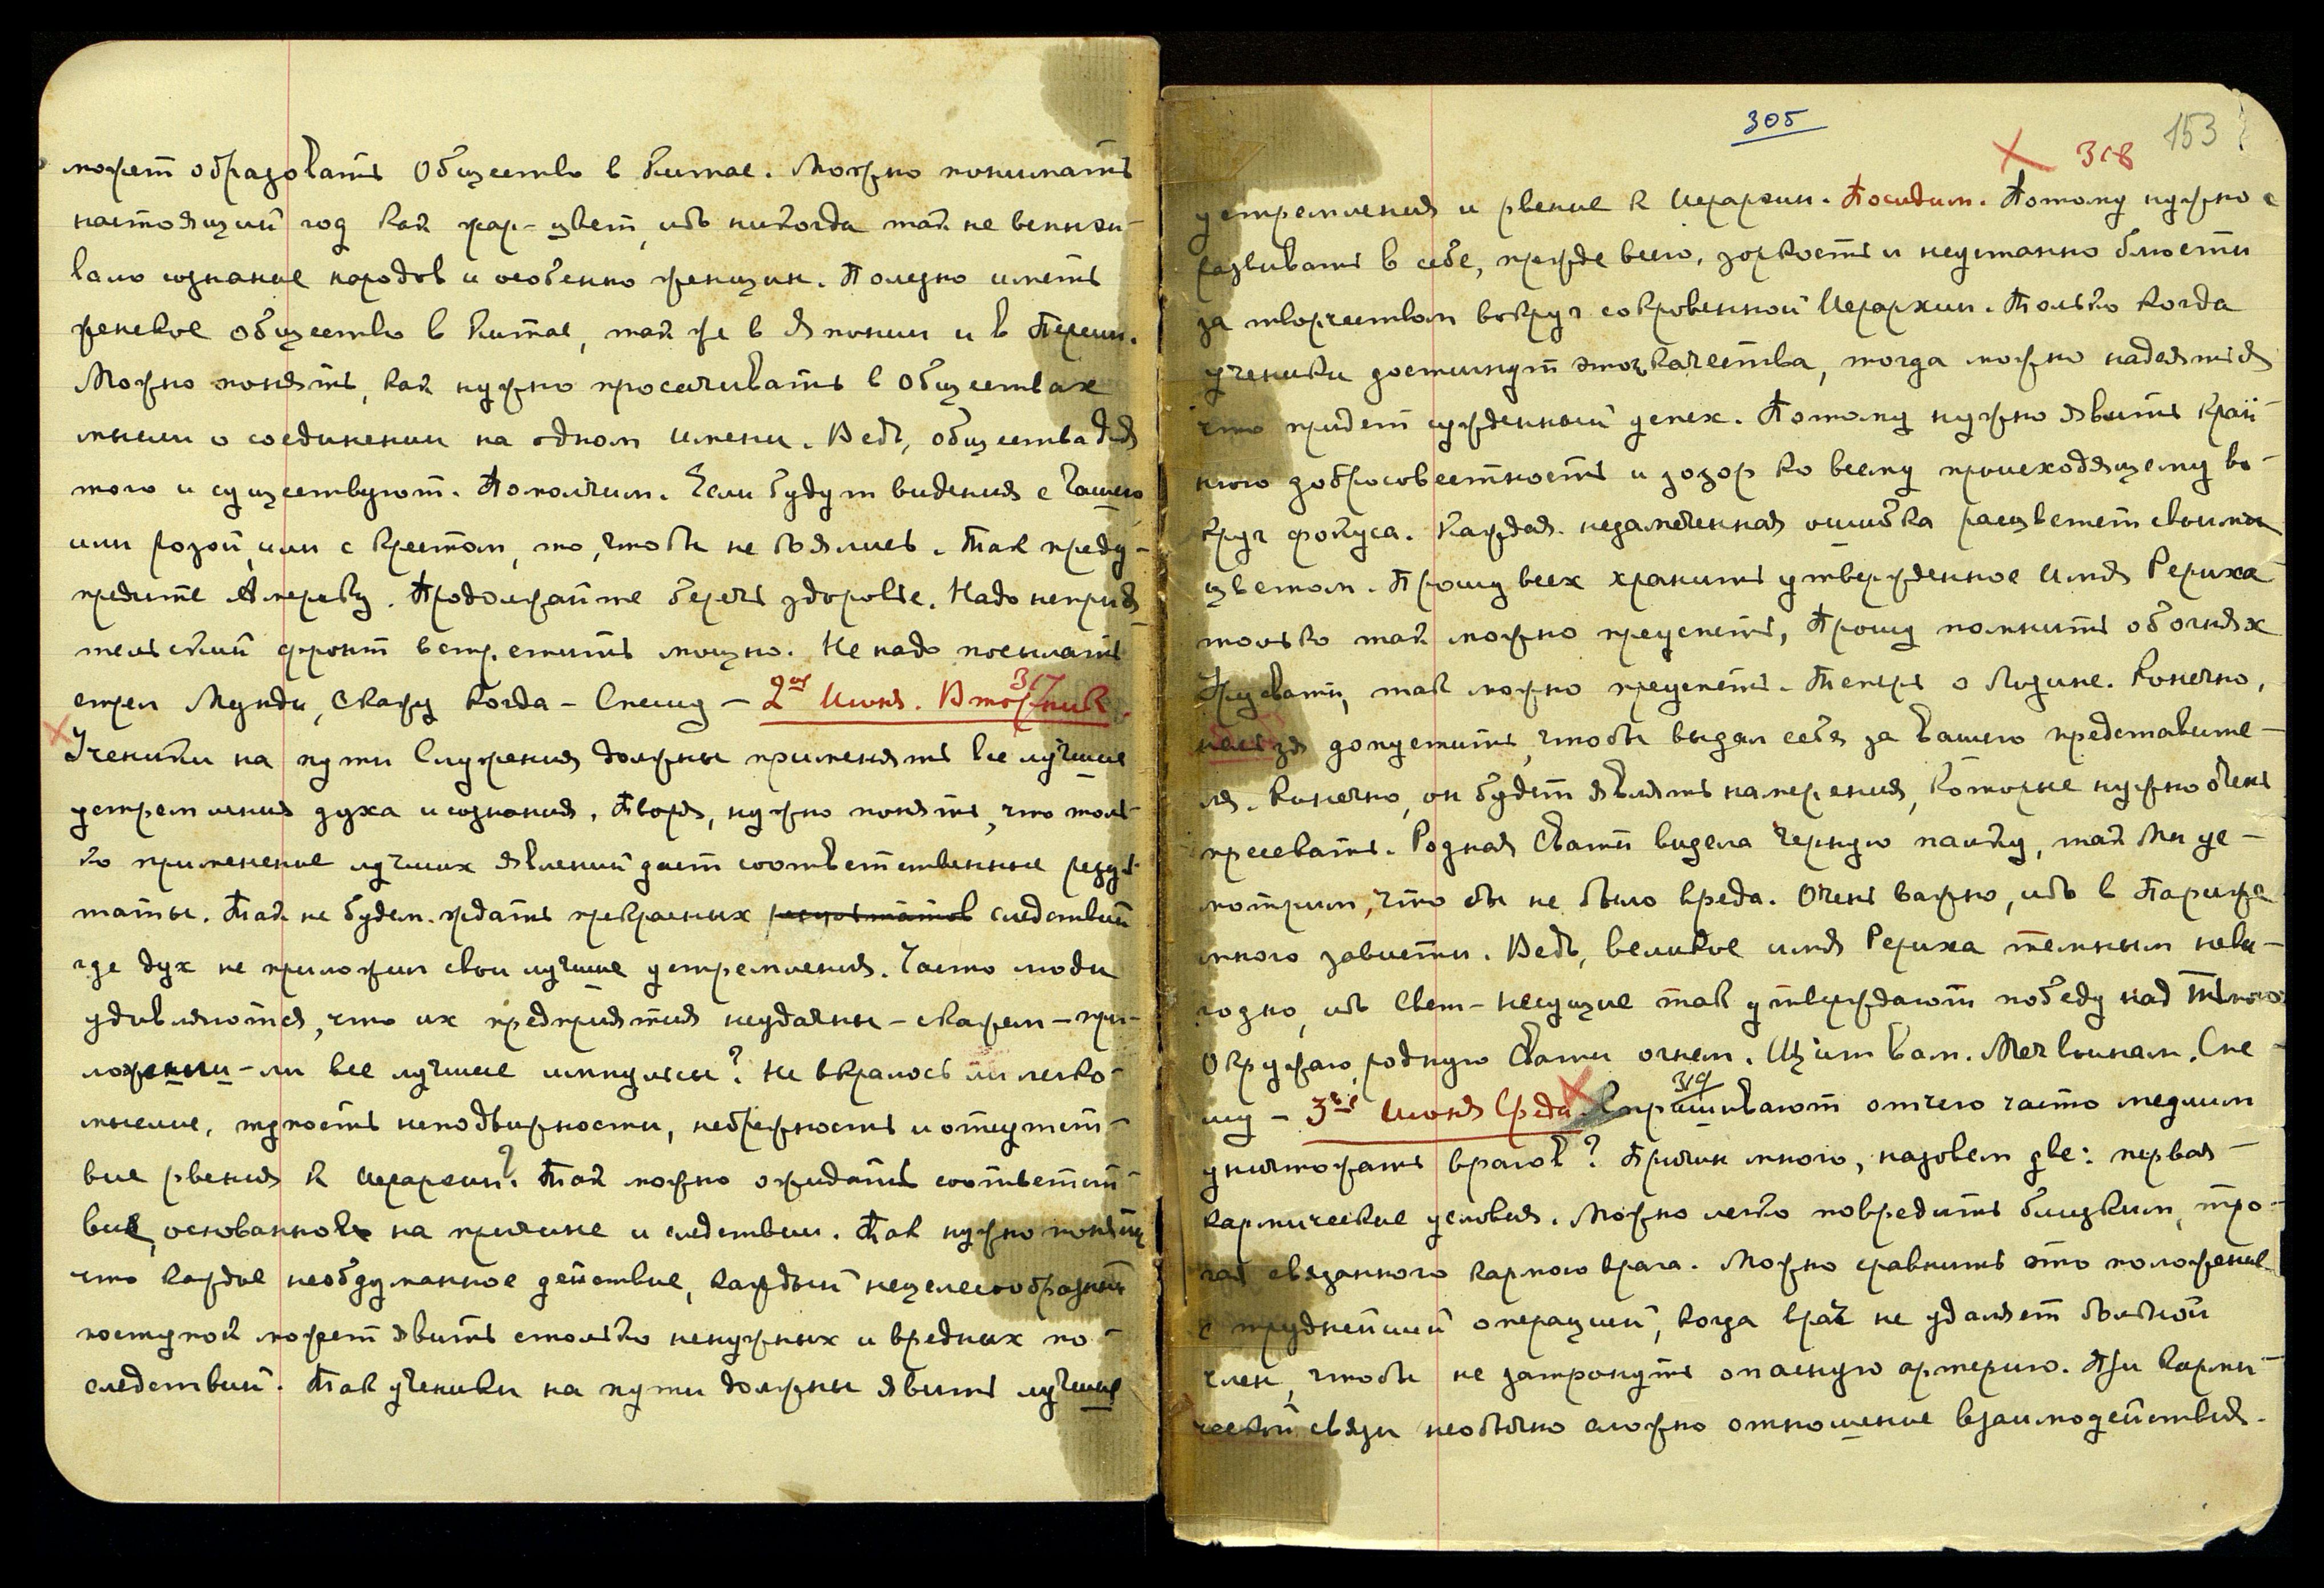 может образовать Общество в Китае. Можно понимать
настоящий год как жар-цвет, ибо никогда так не вспыхи-
вало сознание народов и особенно женщин. Полезно иметь
женское общество в Китае, так же в Японии и в Персии.
Можно понять, как нужно просачивать в Обществах
мысли о соединении на одном Имени. Ведь, общества для
того и существуют. Помолчим. Если будут видения с Чашею
или розой, или с крестом, то, чтобы не боялись. Так преду-
предите Америку. Продолжайте беречь здоровье. Надо неприя
тельский фронт встретить мощно. Не надо посылать
стрел Мунди, скажу когда – Спешу – 2ое Июня. Вторник. 317
Ученики на пути Служения должны применять все лучшие
устремления духа и сознания. Творя, нужно понять, что толь-
ко применение лучших явлений дает соответственные резуль-
таты. Так не будем ждать прекрасных результатов следствий
где дух не приложил свои лучшие устремления. Часто люди
удивляются, что их предприятия неудачны – скажем – при-
ложены-ли все лучшие импульсы? Не вкралось ли легко-
мыслие, тупость неподвижности, небрежность и отсутст-
вие рвения к Иерархии? Так можно ожидать соответст-
вие, основанное на причине и следствии. Так нужно понять,
что каждое необдуманное действие, каждый нецелесообразный
поступок может явить столько ненужных и вредных по-
следствий. Так ученики на пути должны явить лучшие
305
318 153
устремления и рвение к Иерархии. Посидим. Потому нужно
развивать в себе, прежде всего, зоркость и неустанно блюсти
за творчеством вокруг сокровенной Иерархии. Только когда
ученики достигнут этого качества, тогда можно надеяться
что придет сужденный успех. Потому нужно явить край-
нюю добросовестность и дозор ко всему происходящему во-
круг фокуса. Каждая незамеченная ошибка расцветет своим
цветом. Прошу всех хранить утвержденное Имя Рериха
только так можно преуспеть, Прошу помнить об огнях
Урусвати, так можно преуспеть. Теперь о Лозине. Конечно,
нельзя допустить, чтобы выдал себя за Вашего представите-
ля. Конечно, он будет являть намерения, которые нужно очень
пресекать. Родная Свати видела черную папку, так Мы ус-
мотрим, что бы не было вреда. Очень важно, ибо в Париже
много зависти. Ведь, великое имя Рериха темным невы-
годно, ибо Свет-несущие так утверждают победу над тьмою.
Окружаю родную Свати огнем. Щит вам. Меч воинам. Спе-
шу – 3ье Июня Среда. 319 Спрашивают отчего часто медлим
уничтожать врагов? Причин много, назовем две: первая
кармические условия. Можно легко повредить близким, тро-
гая связанного кармою врага. Можно сравнить это положение
с труднейшей операцией, когда врач не удаляет больной
член, чтобы не затронуть опасную артерию. При карми-
ческой связи необычно сложно отношение взаимодействия.